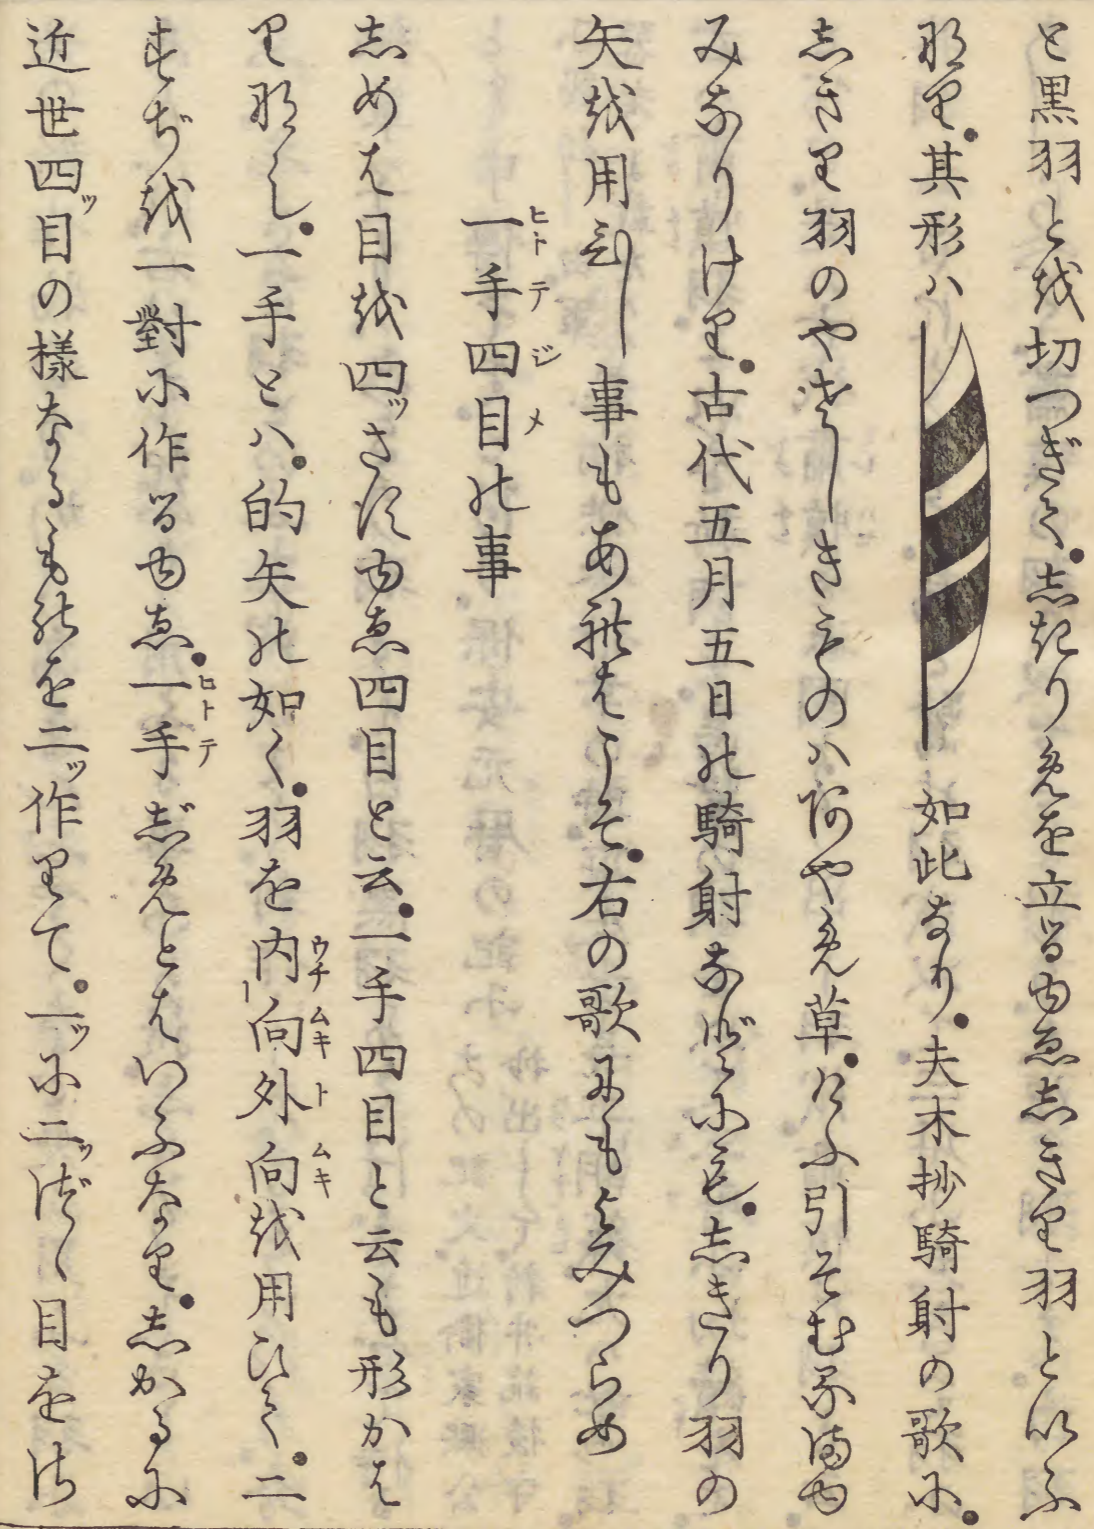 と黒羽とを切つぎて。志きりめを立るゆゑ志きり羽といふ
なり。其形ハ如此なり。夫木抄騎射の歌に。
志きり羽のやさしきものハあやめ草。けふ引そむるまゆ
みなりけり。古代五月五日の騎射などにも。志きり羽の
矢を用ひし事もあればこそ。右の歌にもよみつらめ
一手四目の事
志めは目を四ッさすゆゑ四目と云。一手四目と云も形かは
りなし。一手とハ。的矢の如く。羽を内向外向を用ひて。二
すぢを一對に作るゆゑ。一手じめとはいふなり。志かるに
近世四ッ目の様なるものを二ッ作りて。一ッに二ッづゝ目をさ